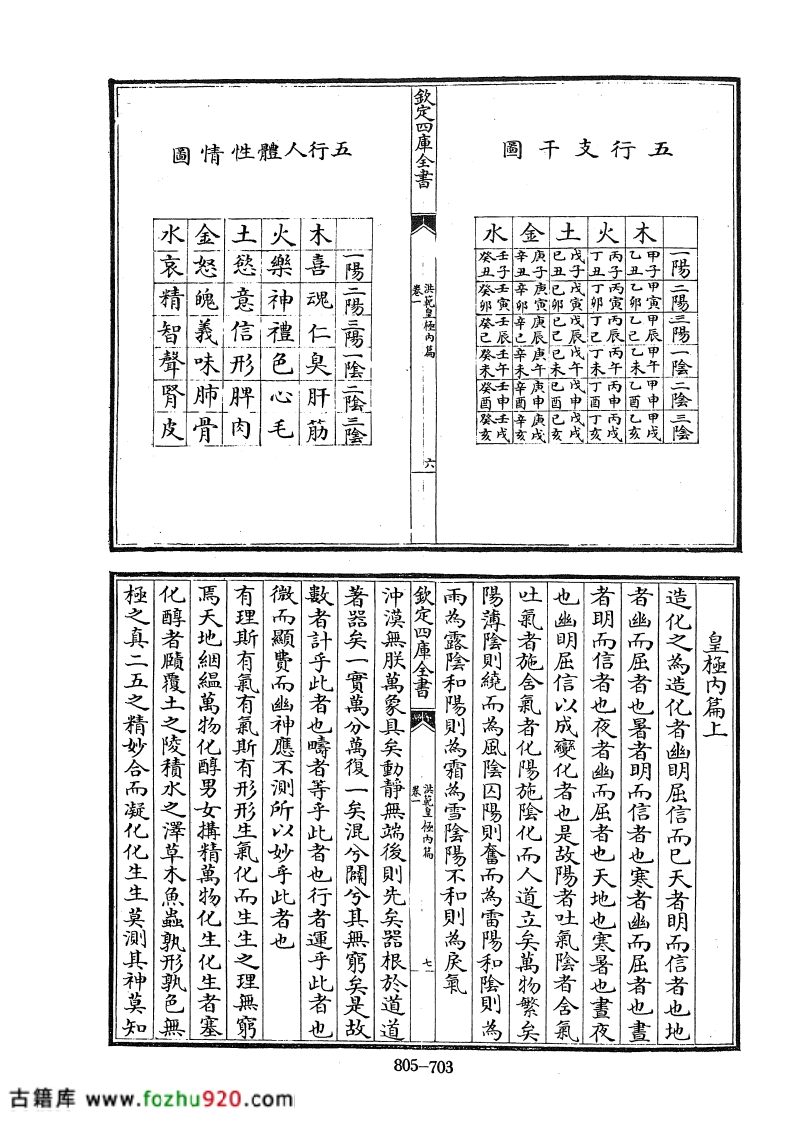 五行支干圖
木 火 土 金 水
一陽 甲子 乙丑 丙子 丁丑 戊子 己丑 庚子 辛丑 壬子 癸丑
二陽 甲寅 乙卯 丙寅 丁卯 戊寅 己卯 庚寅 辛卯 壬寅 癸卯
三陽 甲辰 乙巳 丙辰 丁巳 戊辰 己巳 庚辰 辛巳 壬辰 癸巳
一陰 甲午 乙未 丙午 丁未 戊午 己未 庚午 辛未 壬午 癸未
二陰 甲申 乙酉 丙申 丁酉 戊申 己酉 庚申 辛酉 壬申 癸酉
三陰 甲戌 乙亥 丙戌 丁亥 戊戌 己亥 庚戌 辛亥 壬戌 癸亥
欽定四庫全書
洪範皇極內篇
卷一
六
五行人體性情圖
木 火 土 金 水
一陽 喜 樂 慾 怒 哀
二陽 魂 神 意 魄 精
三陽 仁 禮 信 義 智
一陰 臭 色 形 味 聲
二陰 肝 心 脾 肺 腎
三陰 筋 毛 肉 骨 皮
皇極內篇上
造化之為造化者幽明屈信而已天者明而信者也地
者幽而屈者也暑者明而信者也寒者幽而屈者也晝
者明而信者也夜者幽而屈者也天地也寒暑也晝夜
也幽明屈信以成變化者也是故陽者吐氣陰者含氣
吐氣者施含氣者化陽施陰化而人道立矣萬物繁矣
陽薄陰則繞而為風陰囚陽則奮而為雷陽和陰則為
雨為露陰和陽則為霜為雪陰陽不和則為戾氣
欽定四庫全書
洪範皇極內篇
卷一
七
沖漠無朕萬象具矣動靜無端後則先矣器根於道道
著器矣一實萬分萬復一矣混兮闢兮其無窮矣是故
數者計乎此者也疇者等乎此者也行者運乎此者也
微而顯費而幽神應不測所以妙乎此者也
有理斯有氣有氣斯有形形生氣化而生生之理無窮
焉天地絪縕萬物化醇男女搆精萬物化生化生者塞
化醇者賾覆土之陵積水之澤草木魚蟲孰形孰色無
極之真二五之精妙合而凝化化生生莫測其神莫知
805-703
古籍库 www.fozhu920.com